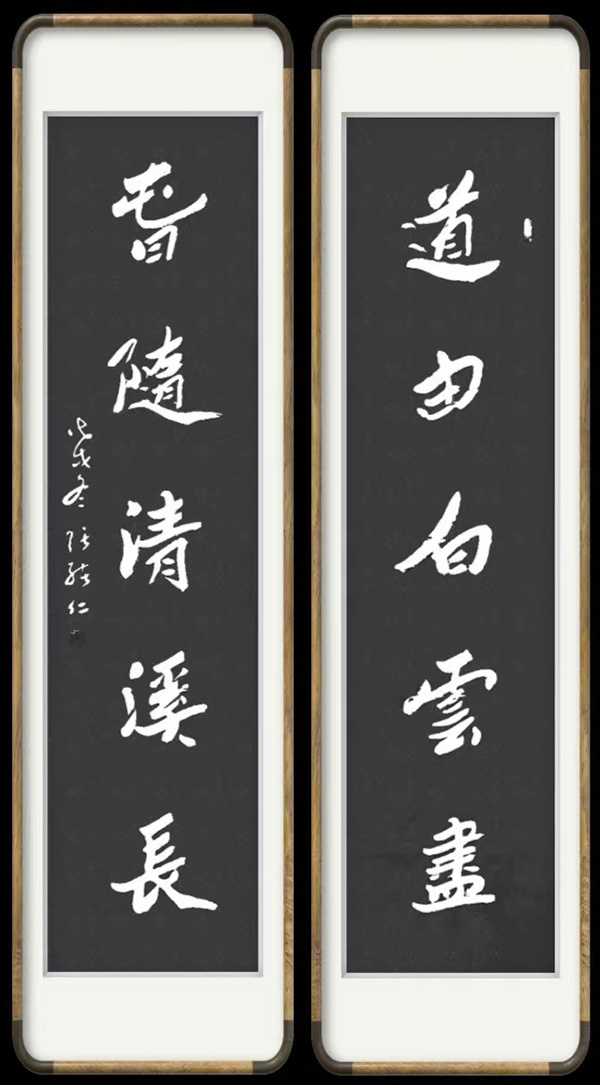 道由白雲盡
旾隨清溪長
戊戌冬 张 仁